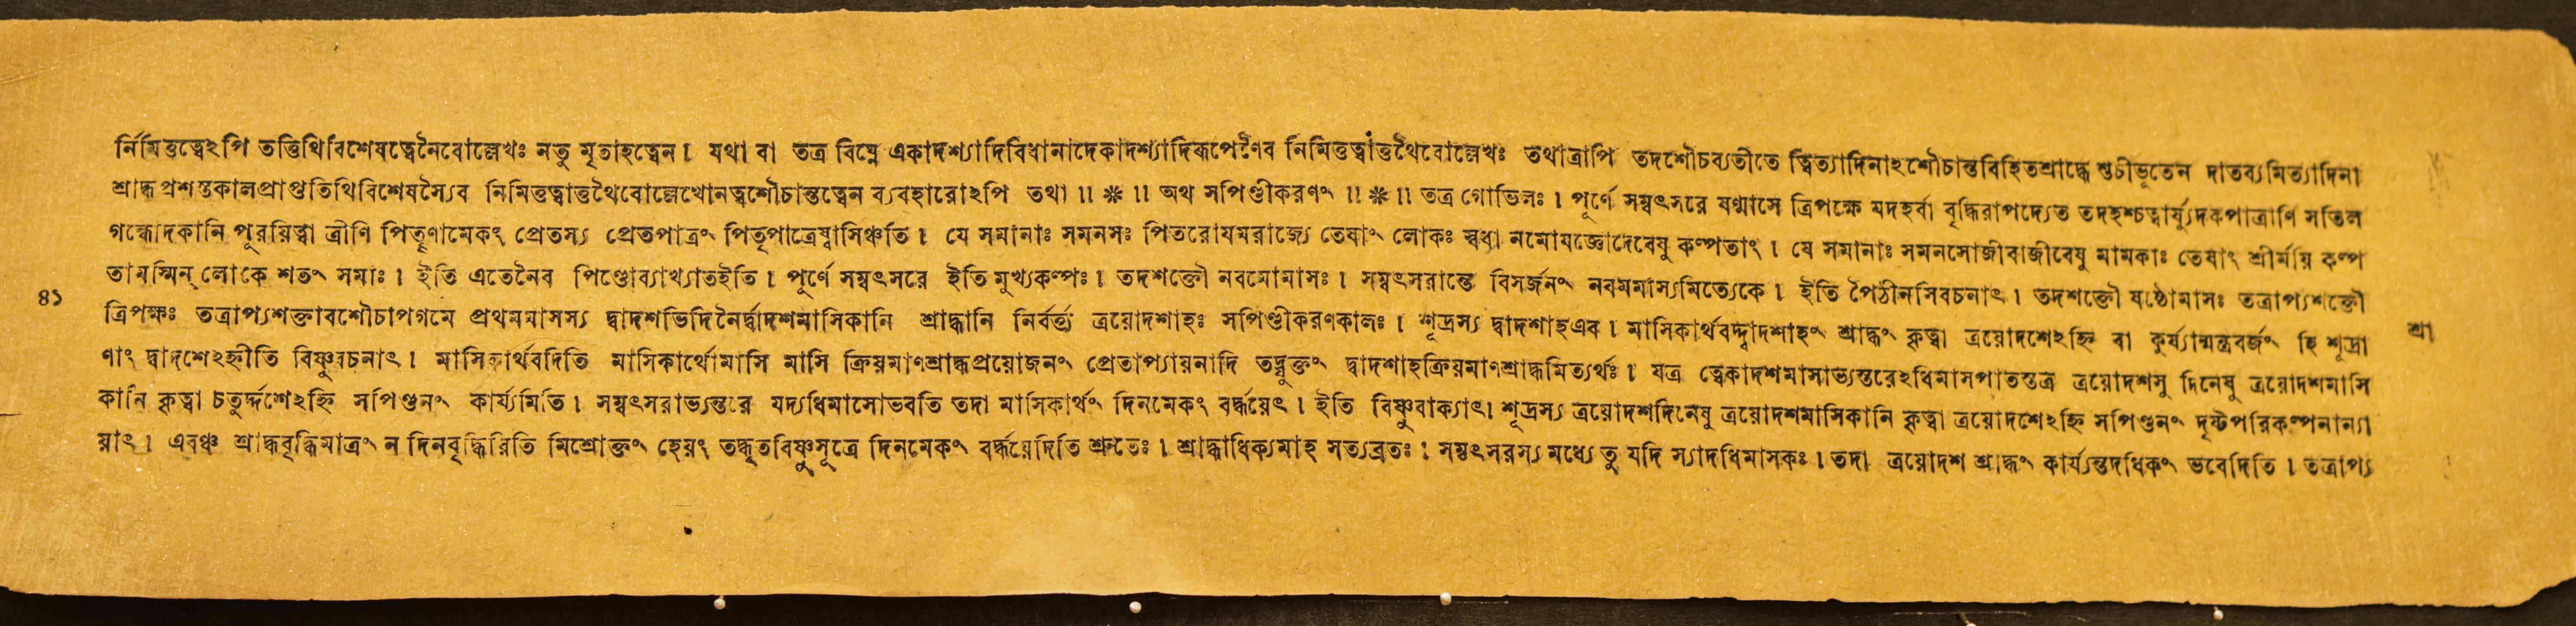 নির্মিত্তত্বেঽপি তত্তিথিবিশেষত্বেনৈবোল্লেখঃ নতু মৃতাহত্বেন। যথা বা তত্র বিঘ্নে একাদশ্যাদিবিধানাদেকাদশ্যাদিরূপেণৈব নিমিত্তত্বাত্তথৈবোল্লেখঃ তথাত্রাপি তদশৌচব্যতীতে ত্বিত্যাদিনাঽশৌচান্তবিহিতশ্রাদ্ধে শুচীভূতেন দাতব্যমিত্যাদিনা
শ্রাদ্ধপ্রশস্তকালপ্রাপ্ততিথিবিশেষস্যৈব নিমিত্তত্বাত্তথৈবোল্লেখোনত্বশৌচান্তত্বেন ব্যবহারোঽপি তথা॥ ❋ ॥ অথ সপিণ্ডীকরণং ॥ ❋ ॥ তত্র গোভিলঃ। পূর্ণে সম্বৎসরে ষণ্মাসে ত্রিপক্ষে যদহর্বা বৃদ্ধিরাপদ্যেত তদহশ্চত্বার্য্যুদকপাত্রাণি সতিল
গন্ধোদকানি পূরয়িত্বা ত্রীণি পিতৄণামেকং প্রেতস্য প্রেতপাত্রং পিতৃপাত্রেষ্বাসিঞ্চতি। যে সমানাঃ সমনসঃ পিতরোযমরাজ্যে তেষাং লোকঃ স্বধা নমোযজ্ঞোদেবেষু কল্পতাং। যে সমানাঃ সমনসোজীবাজীবেষু মামকাঃ তেষাং শ্রীর্ময়ি কল্প
তামস্মিন্ লোকে শতং সমাঃ। ইতি এতেনৈব পিণ্ডোব্যাখ্যাতইতি। পূর্ণে সম্বৎসরে ইতি মুখ্যকল্পঃ। তদশক্তৌ নবমোমাসঃ। সম্বৎসরান্তে বিসর্জনং নবমমাস্যমিত্যেকে। ইতি পৈঠীনসিবচনাৎ। তদশক্তৌ ষষ্ঠোমাসঃ তত্রাপ্যশক্তৌ
৪১
ত্রিপক্ষঃ তত্রাপ্যশক্তাবশৌচাপগমে প্রথমমাসস্য দ্বাদশভির্দিনৈর্দ্বাদশমাসিকানি শ্রাদ্ধানি নির্বর্ত্ত্য ত্রয়োদশাহঃ সপিণ্ডীকরণকালঃ। শূদ্রস্য দ্বাদশাহএব। মাসিকার্থবদ্দ্বাদশাহং শ্রাদ্ধং কৃত্বা ত্রয়োদশেঽহ্নি বা কুর্য্যান্মন্ত্রবর্জং হি শূদ্রা
শ্রা
ণাং দ্বাদশেঽহ্নীতি বিষ্ণুবচনাৎ। মাসিকার্থবদিতি মাসিকার্থোমাসি মাসি ক্রিয়মাণশ্রাদ্ধপ্রয়োজনং প্রেতাপ্যায়নাদি তদ্যুক্তং দ্বাদশাহক্রিয়মাণশ্রাদ্ধমিত্যর্থঃ। যত্র ত্বেকাদশমাসাভ্যন্তরেঽধিমাসপাতস্তত্র ত্রয়োদশসু দিনেষু ত্রয়োদশমাসি
কানি কৃত্বা চতুর্দ্দশেঽহ্নি সপিণ্ডনং কার্য্যমিতি। সম্বৎসরাভ্যন্তরে যদ্যধিমাসোভবতি তদা মাসিকার্থং দিনমেকং বর্দ্ধয়েৎ। ইতি বিষ্ণুবাক্যাৎ। শূদ্রস্য ত্রয়োদশদিনেষু ত্রয়োদশমাসিকানি কৃত্বা ত্রয়োদশেঽহ্নি সপিণ্ডনং দৃষ্টপরিকল্পনান্যা
য়াৎ। এবঞ্চ শ্রাদ্ধবৃদ্ধিমাত্রং ন দিনবৃদ্ধিরিতি মিশ্রোক্তং হেয়ং তদ্ধৃতবিষ্ণুসূত্রে দিনমেকং বর্দ্ধয়েদিতি শ্রুতেঃ। শ্রাদ্ধাধিক্যমাহ সত্যব্রতঃ। সম্বৎসরস্য মধ্যে তু যদি স্যাদধিমাসকঃ। তদা ত্রয়োদশ শ্রাদ্ধং কার্য্যন্তদধিকং ভবেদিতি। তত্রাপ্য